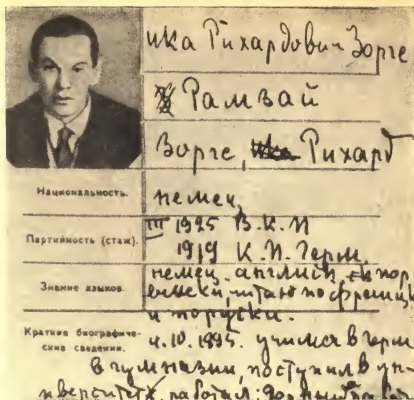 ика Рихардович Зорге
Рамзай
Зорге, Рихард
Национальность.
немец
Партийность (стаж).
III 1925 В.К.П
1919 К.П. Герм.
Знание языков.
немец. английск.
читаю по француз
и по русски.
Краткие биографиче-
ские сведения.
4.10.1895. учился в Герм
в гимназии, поступил в ун-
иверситет, работал: